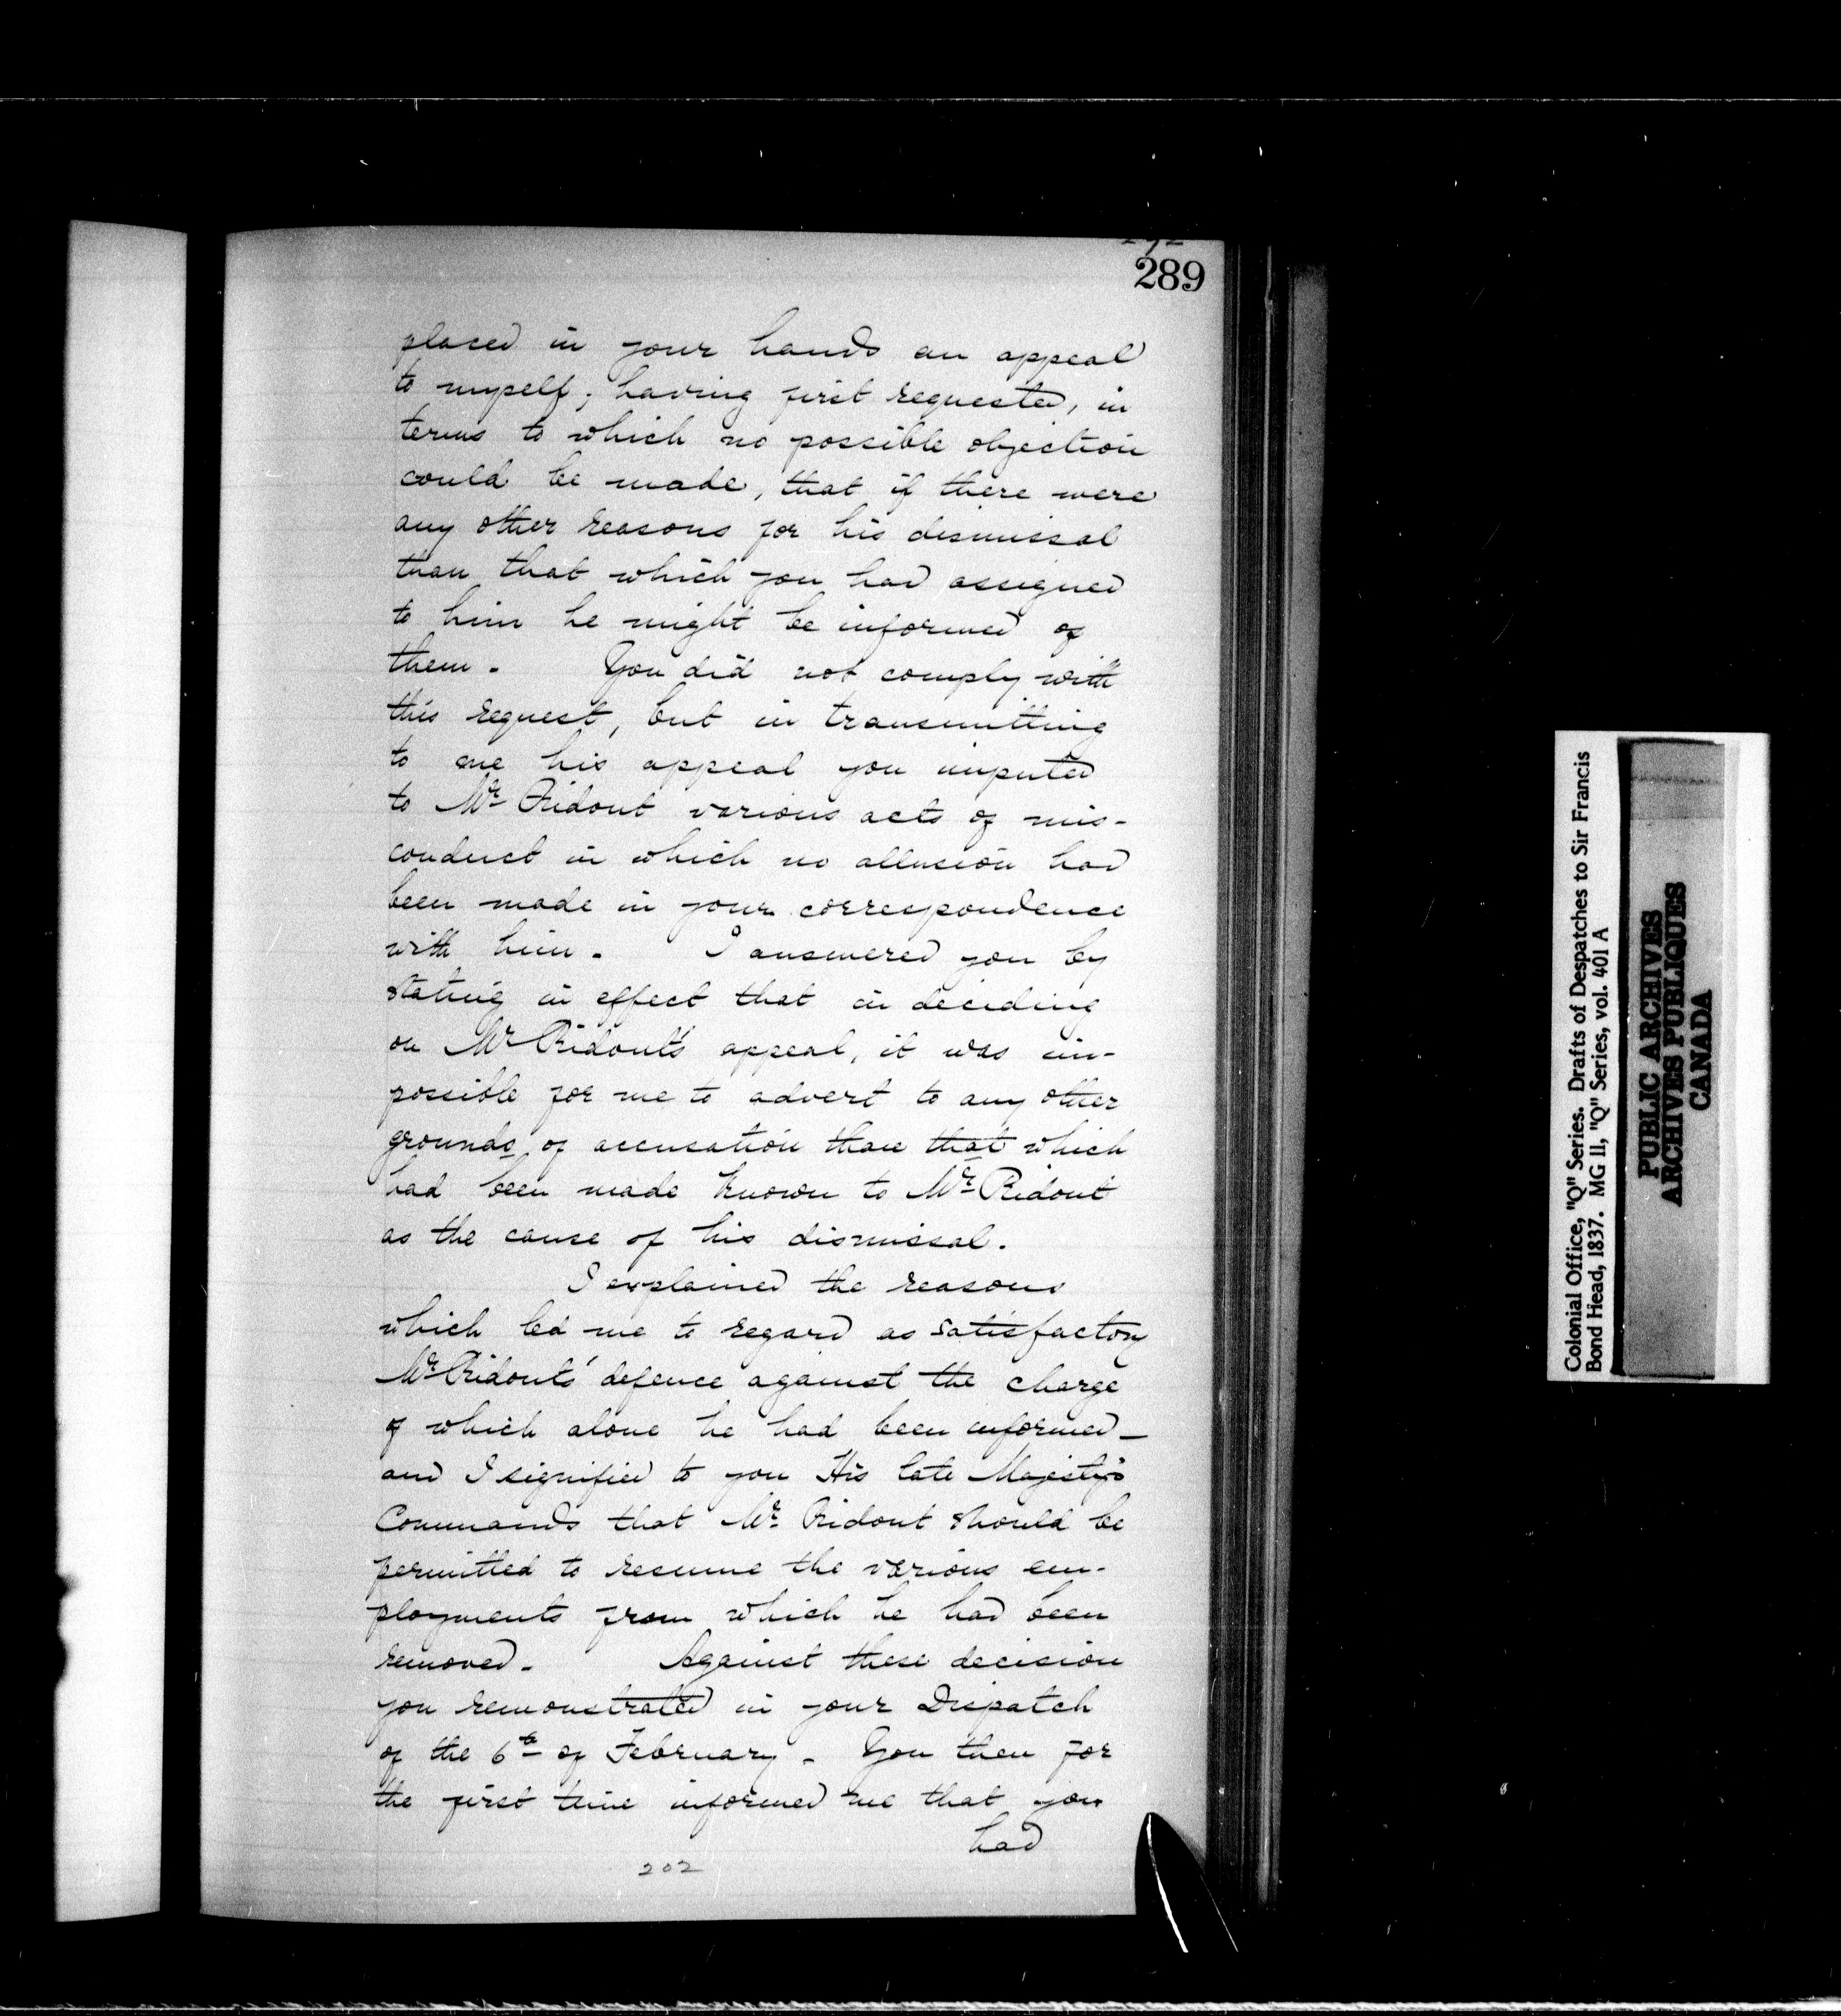 289
placed in your hands an appeal
to myself; having first requested, in
terms to which no possible objection
could be made, that if there were
any other reasons for his dismissal
than that which you had assigned
to him he might be informed of
them. You did not comply with
this request, but in transmitting
to me his appeal you imputed
to Mr Ridout various acts of mis-
conduct in which no allusion had
been made in your correspondence
with him. I answered you by
stating in effect that in deciding
on Mr Ridout's appeal, it was im-
possible for me to advert to any other
grounds of accusation than that which
had been made known to Mr Ridout
as the cause of his dismissal.
I explained the reasons
which led me to regard as satisfactory
Mr Ridout's defence against the charge
of which alone he had been informed_
and I signified to you His late Majesty's
Commands that Mr Ridout should be
permitted to resume the various em-
ployments from which he had been
removed. Against these decision
you remonstrated in your Dispatch
of the 6th of February. You then for
the first time informed me that you
had
202
Colonial Office, "Q" Series. Drafts of Despatches to Sir Francis
Bond Head, 1837. MG 11, "Q" Series, vol. 401 A
PUBLIC ARCHIVES
ARCHIVES PUBLIQUES
CANADA